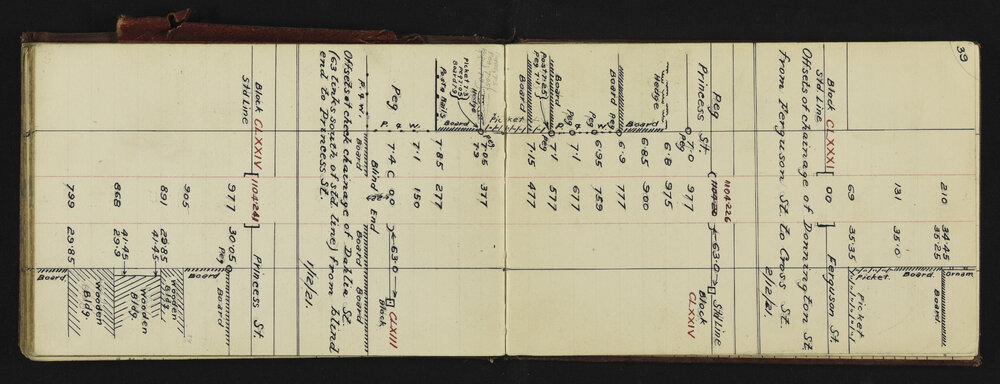 39
Ornam.
210 34.45
35.25 Board.
131 35.0 Board.
69 35.35 Picket. Picket
Block CLXXXI 00 Ferguson St.
Std. Line
Offsets of chainage of Donnington St.
from Ferguson St. to Cross St.
2/12/21.
Peg (1104.226 63.0 Std Line
Princess St. 977 Block CLXXIV
7.0 Peg
Hedge 6.8 975
6.85 900
Board
6.9 777
Peg
6.95 759
P. & W.
7.1 677
Board
Post 7.25
Peg 7.1
7.1 577
Peg
Board 7.15 477
Picket
7.05 377
Peg
7.9
Hedge
Picket 7.3
Peg 7.05
Board 7.9
Board
Posts & Rails 7.85 277
7.1 150
P. & W.
Peg 7.4 C 00 63.0 CLXIII
Block
Blind End
P. & W. Board Board Board
Offsets of check chainage of Dahlia St.
(63 links south of std. line) from blind
end to Princess St.
1/12/21.
Block CLXXIV (1104.241) Princess St.
Std Line
977 30.05 Board
Peg
905 Board
891 29.85 Wooden Bldg.
41.45
868 41.45 Wooden Bldg.
29.9
Wooden Bldg.
799 29.85 Board